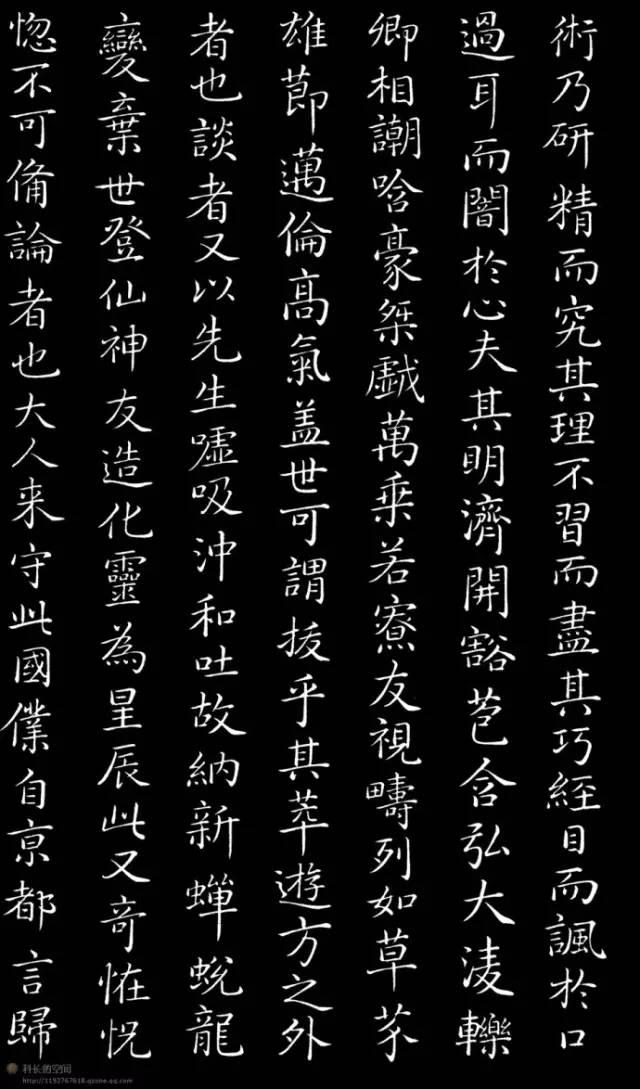 術乃研精而究其理不習而盡其巧經目而諷於口
過耳而闇於心夫其明濟開豁苞含弘大淩轢
卿相謿哈豪桀戱萬乗若寮友視疇列如草芥
雄莭邁倫高氣盖世可謂拔乎其萃遊方之外
者也談者又以先生嘘吸沖和吐故納新蟬蛻龍
變棄世登仙神友造化靈為星辰此又奇怪恍
惚不可備論者也大人来守此國僕自京都言歸
科长的空间
http://1192767618.qzone.qq.com